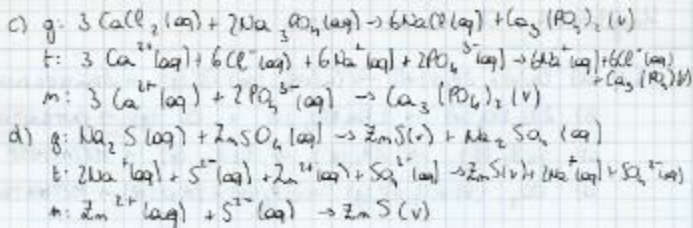 c) g: 3 CaCl₂ (aq) + 2Na₃PO₄(aq) → 6NaCl(aq) + Ca₃(PO₄)₂(v)
t: 3 Ca²⁺(aq) + 6Cl⁻(aq) + 6Na⁺(aq) + 2PO₄³⁻(aq) → 6Na⁺(aq) + 6Cl⁻(aq)
+ Ca₃(PO₄)₂(v)
n: 3 Ca²⁺(aq) + 2 PO₄³⁻(aq) → Ca₃(PO₄)₂ (v)
d) g: Na₂S(aq) + ZnSO₄(aq) → ZnS(v) + Na₂SO₄ (aq)
t: 2Na⁺(aq) + S²⁻(aq) + Zn²⁺(aq) + SO₄²⁻(aq) → ZnS(v) + 2Na⁺(aq) + SO₄²⁻(aq)
n: Zn²⁺(aq) + S²⁻(aq) → ZnS(v)